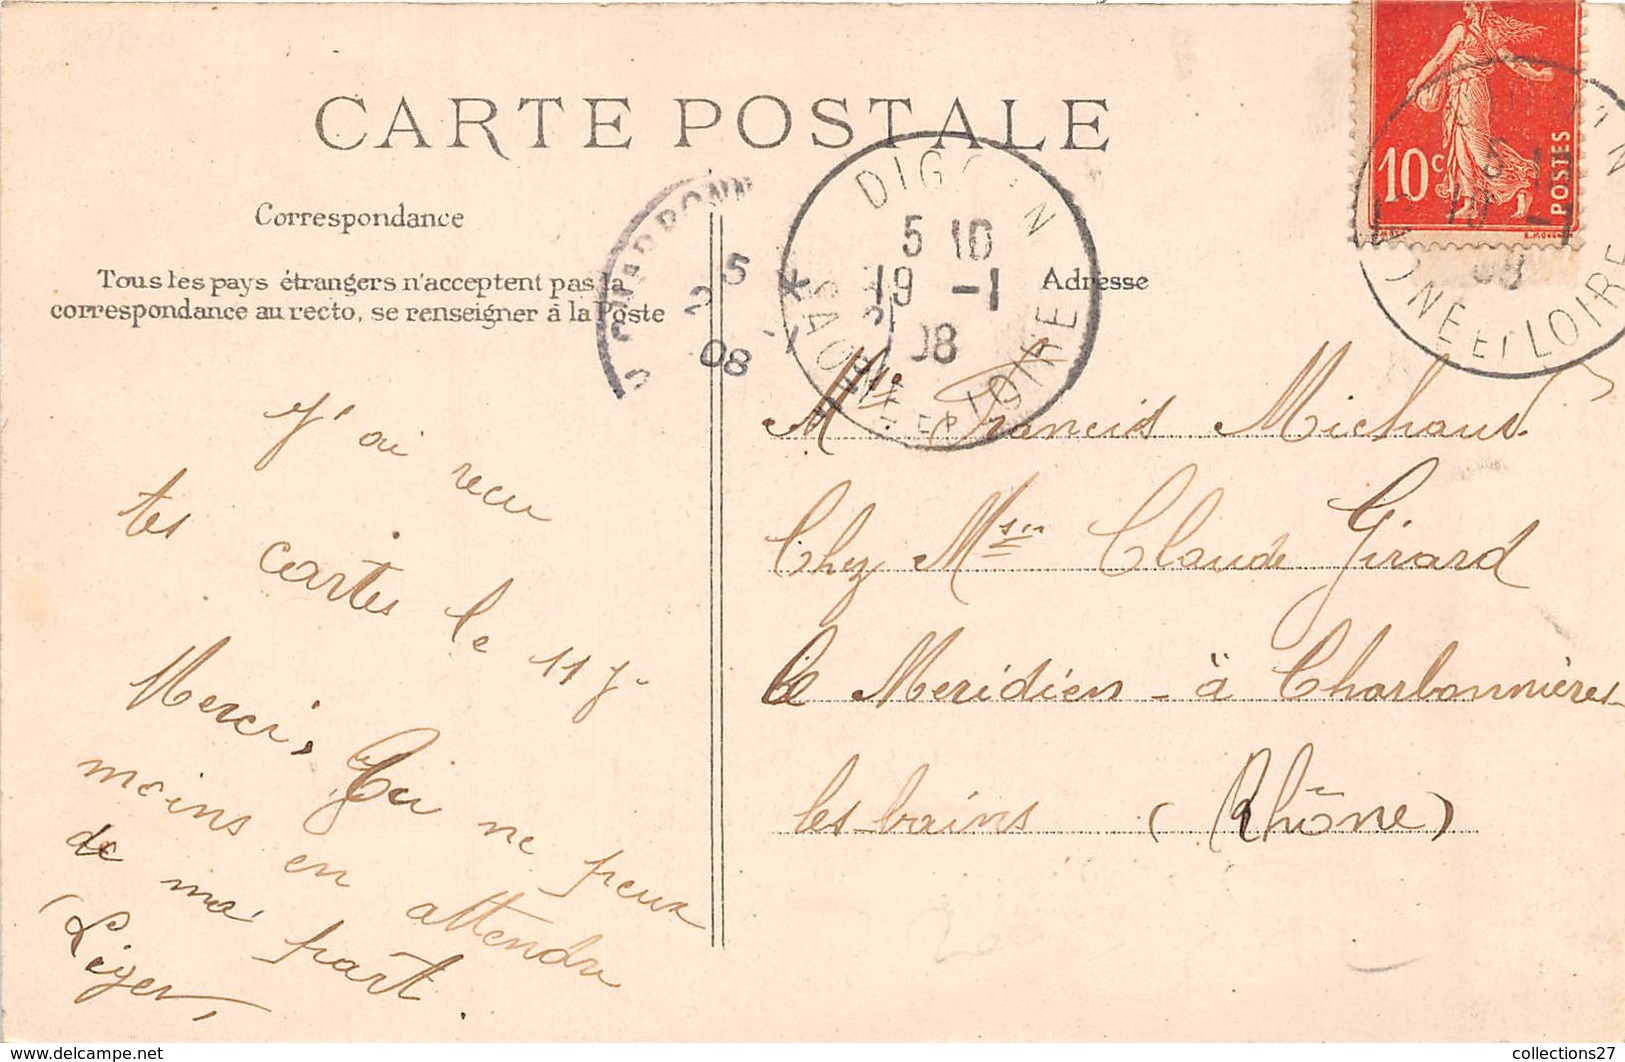 CARTE POSTALE
Correspondance
Tous les pays étrangers n'acceptent pas la
correspondance au recto, se renseigner à la Poste
Adresse
10c
POSTES
DIGOIN
5 10
19 -1
08
SAONE ET LOIRE
5
2
08
08
ONE ET LOIRE
J'ai recu
tes cartes le 11 f
Merci. Tu ne peux
moins en attendre
de ma part.
Liger
Mr Francis Michaud
Chez Msr Claude Girard
Le Meridien - à Charbonnières
les bains (Rhône)
www.delcampe.net
collections27